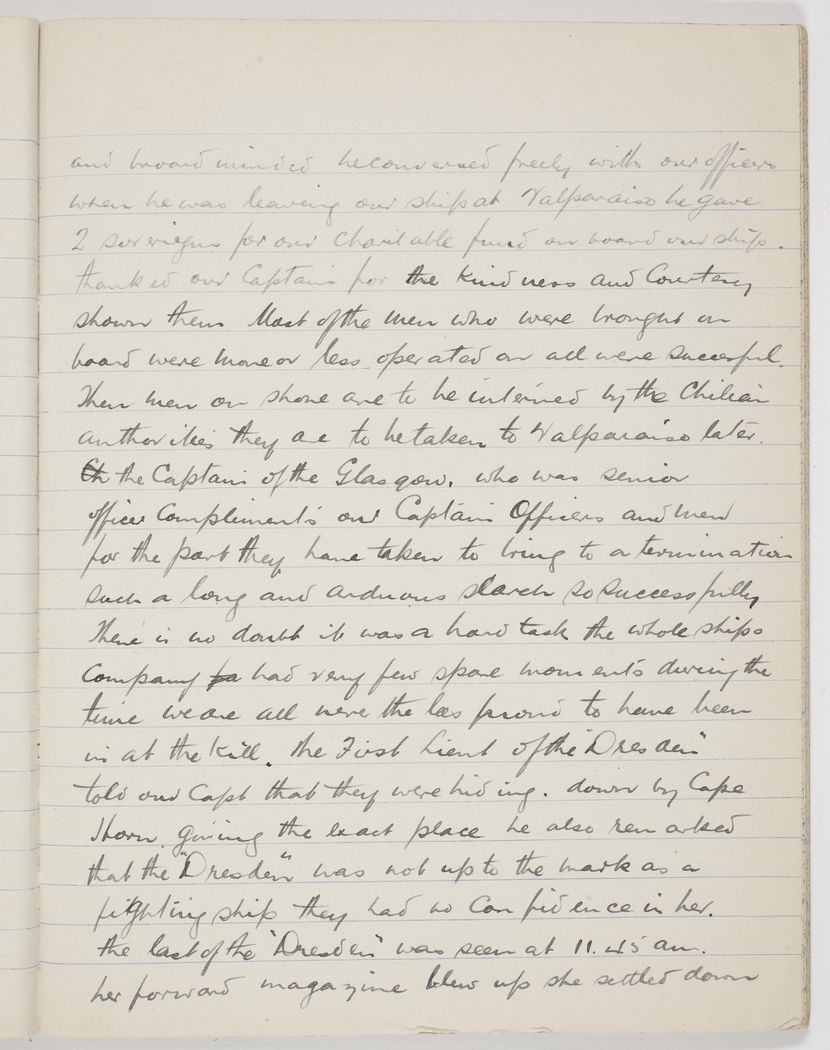 and broard minded he conversed freely with our officers
when he was leaving our ship at Valparaiso he gave
2 soveriegns for our Charitable fund on board our ship.
thanked our Captain for the Kindness and Courtesy
shown them Most of the men who were brought on
board were more or less operated on all were successful.
Then men on shore are to be interned by the Chilian
authorities they are to be taken to Valparaiso later.
Ch the Captain of the Glasgow. who was senior
officer Compliments our Captain Officers and men
for the part they have taken to bring to a termination
such a long and arduous search so successfully
There is no doubt it was a hard task the whole ships
Company fa had very few spare moments during the
time we are all never the les proud to have been
in at the Kill. the First Lieut of the "Dresden"
told our Capt that they were hiding. down by Cape
Horn giving the exact place he also remarked
that the "Dresden" was not up to the mark as a
fighting ship they had no Confidence in her.
the last of the "Dresden" was seen at 11.45 am.
her forward magazine blew up she settled down